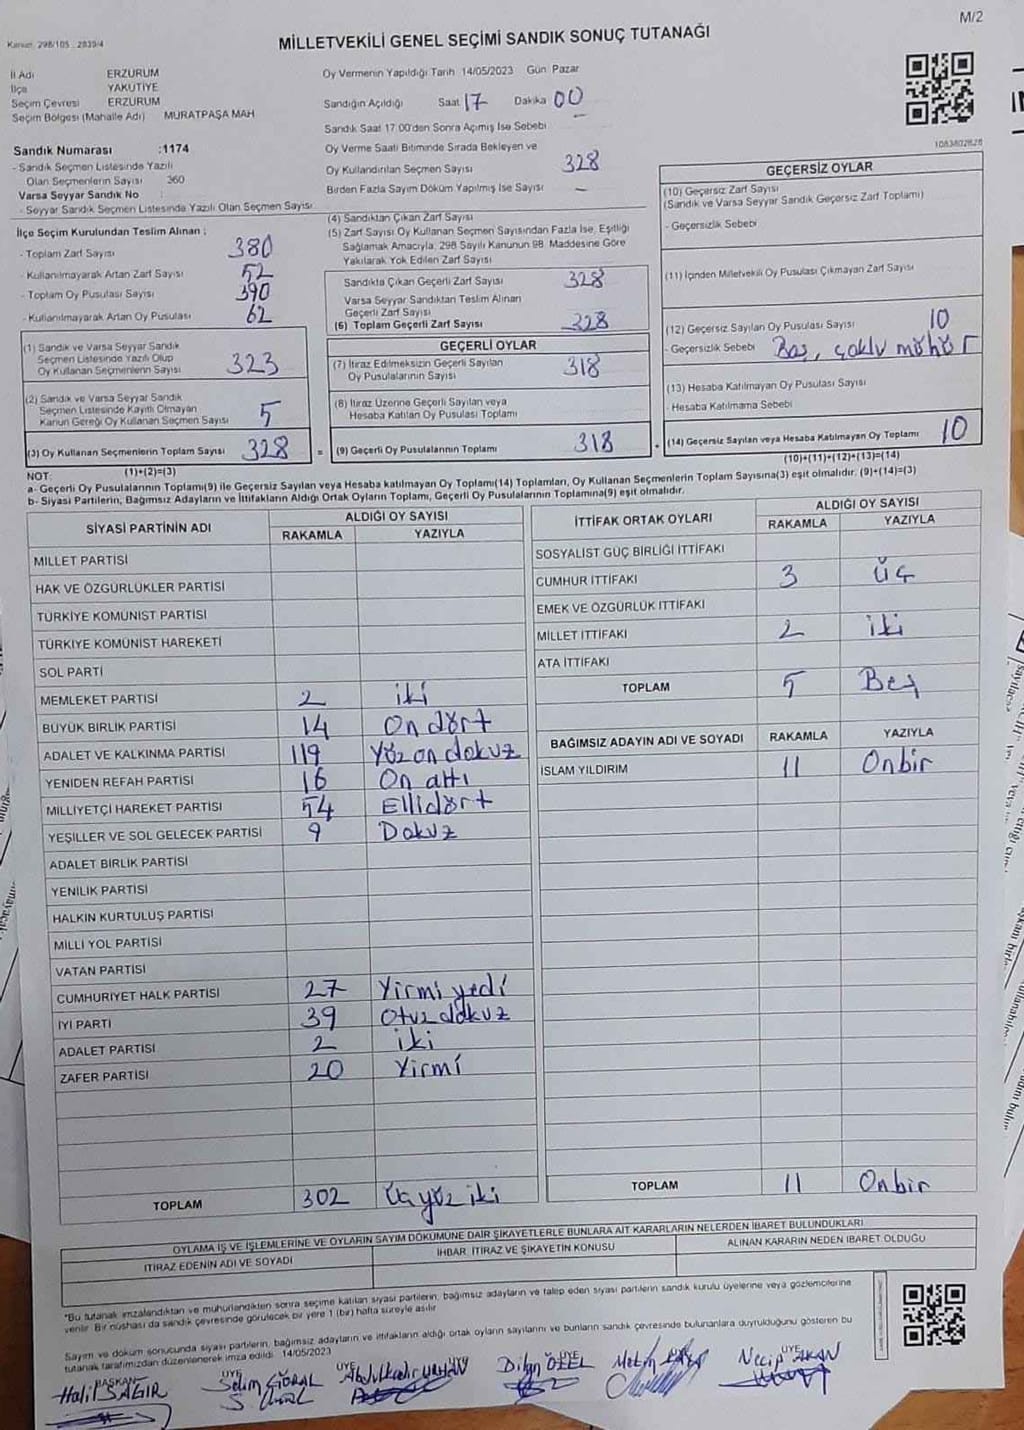 M/2
Kanun: 298/105 2839/4
MİLLETVEKİLİ GENEL SEÇİMİ SANDIK SONUÇ TUTANAĞI
İl Adı ERZURUM
İlçe YAKUTİYE
Seçim Çevresi ERZURUM
Seçim Bölgesi (Mahalle Adı) MURATPAŞA MAH
Sandık Numarası :1174
- Sandık Seçmen Listesinde Yazılı
Olan Seçmenlerin Sayısı 360
Varsa Seyyar Sandık No :
- Seyyar Sandık Seçmen Listesinde Yazılı Olan Seçmen Sayısı
İlçe Seçim Kurulundan Teslim Alınan ;
- Toplam Zarf Sayısı 380
- Kullanılmayarak Artan Zarf Sayısı 52
- Toplam Oy Pusulası Sayısı 390
- Kullanılmayarak Artan Oy Pusulası 62
(1) Sandık ve Varsa Seyyar Sandık
Seçmen Listesinde Yazılı Olup
Oy Kullanan Seçmenlerin Sayısı 323
(2) Sandık ve Varsa Seyyar Sandık
Seçmen Listesinde Kayıtlı Olmayan
Kanun Gereği Oy Kullanan Seçmen Sayısı 5
(3) Oy Kullanan Seçmenlerin Toplam Sayısı 328
(1)+(2)=(3)
Oy Vermenin Yapıldığı Tarih 14/05/2023 Gün Pazar
Sandığın Açıldığı Saat 17 Dakika 00
Sandık Saat 17.00'den Sonra Açımış İse Sebebi –
Oy Verme Saati Bitiminde Sırada Bekleyen ve
Oy Kullandırılan Seçmen Sayısı 328
Birden Fazla Sayım Döküm Yapılmış İse Sayısı –
(4) Sandıktan Çıkan Zarf Sayısı
(5) Zarf Sayısı Oy Kullanan Seçmen Sayısından Fazla İse, Eşitliği
Sağlamak Amacıyla, 298 Sayılı Kanunun 98. Maddesine Göre
Yakılarak Yok Edilen Zarf Sayısı
Sandıkta Çıkan Geçerli Zarf Sayısı 328
Varsa Seyyar Sandıktan Teslim Alınan
Geçerli Zarf Sayısı
(6) Toplam Geçerli Zarf Sayısı 328
GEÇERLİ OYLAR
(7) İtiraz Edilmeksizin Geçerli Sayılan
Oy Pusulalarının Sayısı 318
(8) İtiraz Üzerine Geçerli Sayılan veya
Hesaba Katılan Oy Pusulası Toplamı
= (9) Geçerli Oy Pusulalarının Toplamı 318
1083802828
GEÇERSİZ OYLAR
(10) Geçersiz Zarf Sayısı
(Sandık ve Varsa Seyyar Sandık Geçersiz Zarf Toplamı)
- Geçersizlik Sebebi
(11) İçinden Milletvekili Oy Pusulası Çıkmayan Zarf Sayısı
(12) Geçersiz Sayılan Oy Pusulası Sayısı 10
- Geçersizlik Sebebi Boş, çoklu mühür
(13) Hesaba Katılmayan Oy Pusulası Sayısı
- Hesaba Katılmama Sebebi
(14) Geçersiz Sayılan veya Hesaba Katılmayan Oy Toplamı 10
(10)+(11)+(12)+(13)=(14)
NOT:
a- Geçerli Oy Pusulalarının Toplamı(9) ile Geçersiz Sayılan veya Hesaba katılmayan Oy Toplamı(14) Toplamları, Oy Kullanan Seçmenlerin Toplam Sayısına(3) eşit olmalıdır. (9)+(14)=(3)
b- Siyasi Partilerin, Bağımsız Adayların ve İttifakların Aldığı Ortak Oyların Toplamı, Geçerli Oy Pusulalarının Toplamına(9) eşit olmalıdır.
SİYASİ PARTİNİN ADI ALDIĞI OY SAYISI
RAKAMLA YAZIYLA
MİLLET PARTİSİ
HAK VE ÖZGÜRLÜKLER PARTİSİ
TÜRKİYE KOMÜNİST PARTİSİ
TÜRKİYE KOMÜNİST HAREKETİ
SOL PARTİ
MEMLEKET PARTİSİ 2 iki
BÜYÜK BİRLİK PARTİSİ 14 On dört
ADALET VE KALKINMA PARTİSİ 119 Yüz on dokuz
YENİDEN REFAH PARTİSİ 16 On altı
MİLLİYETÇİ HAREKET PARTİSİ 54 Ellidört
YEŞİLLER VE SOL GELECEK PARTİSİ 9 Dokuz
ADALET BİRLİK PARTİSİ
YENİLİK PARTİSİ
HALKIN KURTULUŞ PARTİSİ
MİLLİ YOL PARTİSİ
VATAN PARTİSİ
CUMHURİYET HALK PARTİSİ 27 Yirmi yedi
İYİ PARTİ 39 Otuz dokuz
ADALET PARTİSİ 2 iki
ZAFER PARTİSİ 20 Yirmi
TOPLAM 302 Üç yüz iki
İTTİFAK ORTAK OYLARI ALDIĞI OY SAYISI
RAKAMLA YAZIYLA
SOSYALİST GÜÇ BİRLİĞİ İTTİFAKI
CUMHUR İTTİFAKI 3 Üç
EMEK VE ÖZGÜRLÜK İTTİFAKI
MİLLET İTTİFAKI 2 iki
ATA İTTİFAKI
TOPLAM 5 Beş
BAĞIMSIZ ADAYIN ADI VE SOYADI RAKAMLA YAZIYLA
İSLAM YILDIRIM 11 Onbir
TOPLAM 11 Onbir
OYLAMA İŞ VE İŞLEMLERİNE VE OYLARIN SAYIM DÖKÜMÜNE DAİR ŞİKAYETLERLE BUNLARA AİT KARARLARIN NELERDEN İBARET BULUNDUKLARI
İTİRAZ EDENİN ADI VE SOYADI İHBAR, İTİRAZ VE ŞİKAYETİN KONUSU ALINAN KARARIN NEDEN İBARET OLDUĞU
"Bu tutanak imzalandıktan ve mühürlendikten sonra seçime katılan siyasi partilerin, bağımsız adayların ve talep eden siyasi partilerin sandık kurulu üyelerine veya gözlemcilerine
verilir. Bir nüshası da sandık çevresinde görülecek bir yere 1 (bir) hafta süreyle asılır.
Sayım ve döküm sonucunda siyasi partilerin, bağımsız adayların ve ittifakların aldığı ortak oyların sayılarını ve bunların sandık çevresinde bulunanlara duyrulduğunu gösteren bu
tutanak tarafımızdan düzenlenerek imza edildi. 14/05/2023
BAŞKAN ÜYE ÜYE ÜYE ÜYE
Halil SAĞIR Selim GÜRAL Abdulkadir URHAN Dilan ÖZEL Metin Necip AKAN